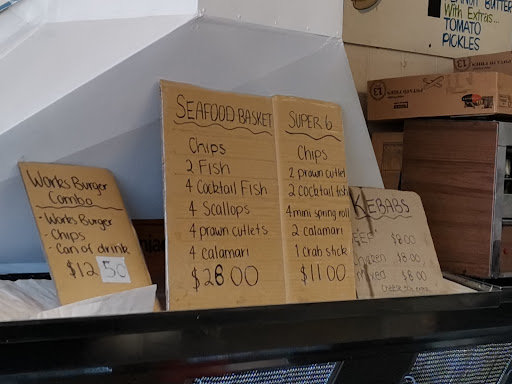 BUTTER
With Extras...
TOMATO
PICKLES
13
13
SEAFOOD BASKET
Chips
2 Fish
4 Cocktail Fish
4 Scallops
4 prawn cutlets
4 calamari
$28 00
SUPER 6
Chips
2 prawn cutlet
2 cocktail fish
4 mini spring roll
2 calamari
1 crab stick
$11 00
Works Burger
Combo
- Works Burger
- Chips
- Can of drink
$12 50
KEBABS
$8.00
$8.00
$8.00